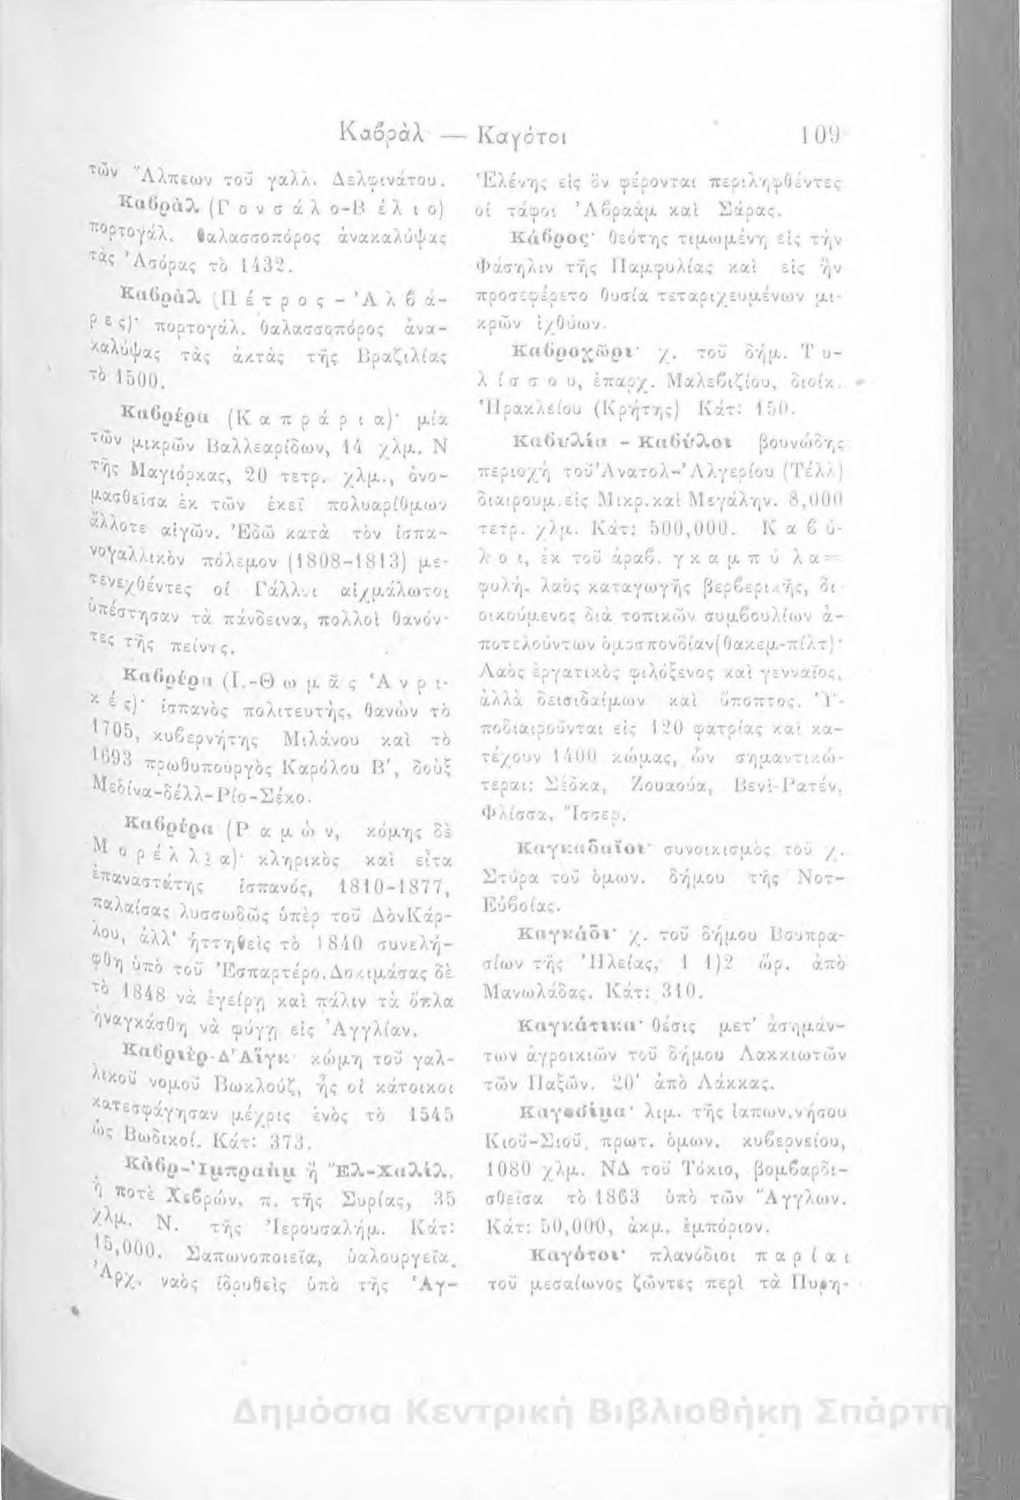 Καβράλ — Καγότοι 109
τῶν Ἄλπεων τοῦ γαλλ. Δελφινάτου.
Καβράλ (Γονσάλο-Βέλιο)
πορτογάλ. θαλασσοπόρος ἀνακαλύψας
τὰς Ἀσόρας τὸ 1432.
Καβράλ (Πέτρος - Ἀλβά-
ρες)· πορτογάλ. θαλασσοπόρος ἀνα-
καλύψας τὰς ἀκτὰς τῆς Βραζιλίας
τὸ 1500.
Καβρέρα (Καπράρια)· μία
τῶν μικρῶν Βαλλεαρίδων, 14 χλμ. Ν
τῆς Μαγιόρκας, 20 τετρ. χλμ., ὀνο-
μασθεῖσα ἐκ τῶν ἐκεῖ πολυαρίθμων
ἄλλοτε αἰγῶν. Ἐδῶ κατὰ τὸν ἱσπα-
νογαλλικὸν πόλεμον (1808-1813) με-
τενεχθέντες οἱ Γάλλοι αἰχμάλωτοι
ὑπέστησαν τὰ πάνδεινα, πολλοὶ θανόν-
τες τῆς πείνης.
Καβρέρα (Ι.-Θωμᾶς Ἁνρι-
κές)· ἱσπανὸς πολιτευτής, θανὼν τὸ
1705, κυβερνήτης Μιλάνου καὶ τὸ
1693 πρωθυπουργὸς Καρόλου Β', δοὺξ
Μεδίνα-δέλλ-Ρίο-Σέκο.
Καβρέρα (Ραμών, κόμης δὲ
Μορέλλια)· κληρικὸς καὶ εἶτα
ἐπαναστάτης ἱσπανός, 1810-1877,
παλαίσας λυσσωδῶς ὑπὲρ τοῦ ΔὸνΚάρ-
λου, ἀλλ' ἡττηθεὶς τὸ 1840 συνελή-
φθη ὑπὸ τοῦ Ἐσπαρτέρο. Δοκιμάσας δὲ
τὸ 1848 νὰ ἐγείρῃ καὶ πάλιν τὰ ὅπλα
ἠναγκάσθη νὰ φύγῃ εἰς Ἀγγλίαν.
Καβριὲρ-Δ'Αἴγκ· κώμη τοῦ γαλ-
λικοῦ νομοῦ Βωκλούζ, ἧς οἱ κάτοικοι
κατεσφάγησαν μέχρις ἑνὸς τὸ 1545
ὡς Βωδικοί. Κάτ: 373.
Κάβρ-Ἰμπραὴμ ἢ Ἒλ-Χαλίλ,
ἡ ποτὲ Χεβρών, π. τῆς Συρίας, 35
χλμ. Ν. τῆς Ἱερουσαλήμ. Κάτ:
15,000. Σαπωνοποιεῖα, ὑαλουργεῖα.
Ἀρχ. ναὸς ἱδρυθεὶς ὑπὸ τῆς Ἁγ-
Ἑλένης εἰς ὃν φέρονται περιληφθέντες
οἱ τάφοι Ἀβραὰμ καὶ Σάρας.
Κάβρος· θεότης τιμωμένη εἰς τὴν
Φάσηλιν τῆς Παμφυλίας καὶ εἰς ἣν
προσεφέρετο θυσία τεταριχευμένων μι-
κρῶν ἰχθύων.
Καβροχῶρι· χ. τοῦ δήμ. Τυ-
λίσσου, ἐπαρχ. Μαλεβιζίου, διοίκ.
Ἡρακλείου (Κρήτης) Κάτ: 150.
Καβυλία - Καβύλοι βουνώδης
περιοχὴ τοῦ Ἀνατολ-Ἀλγερίου (Τέλλ)
διαιρουμ. εἰς Μικρ. καὶ Μεγάλην. 8,000
τετρ. χλμ. Κάτ: 500,000. Καβύ-
λοι, ἐκ τοῦ ἀραβ. γκαμπύλα=
φυλή. λαὸς καταγωγῆς βερβερικῆς, δι
οικούμενος διὰ τοπικῶν συμβουλίων ἀ-
ποτελούντων ὁμοσπονδίαν(θακεμ-πίλτ)·
Λαὸς ἐργατικὸς φιλόξενος καὶ γενναῖος,
ἀλλὰ δεισιδαίμων καὶ ὕποπτος. Ὑ-
ποδιαιροῦνται εἰς 120 φατρίας καὶ κα-
τέχουν 1400 κώμας, ὧν σημαντικώ-
τεραι: Σέδκα, Ζουαούα, Βενὶ-Ρατέν,
Φλίσσα, Ἴσσερ.
Καγκαδαῖοι· συνοικισμὸς τοῦ χ.
Στύρα τοῦ ὁμων. δήμου τῆς Νοτ-
Εὐβοίας.
Καγκάδι· χ. τοῦ δήμου Βουπρα-
σίων τῆς Ἠλείας, 1 1)2 ὥρ. ἀπὸ
Μανωλάδας. Κάτ: 310.
Καγκάτικα· θέσις μετ' ἀσημάν-
των ἀγροικιῶν τοῦ δήμου Λακκιωτῶν
τῶν Παξῶν. 20' ἀπὸ Λάκκας.
Καγοσίμα· λιμ. τῆς ἰαπων. νήσου
Κιού-Σιού, πρωτ. ὁμων. κυβερνείου,
1080 χλμ. ΝΔ τοῦ Τόκιο, βομβαρδι-
σθεῖσα τὸ 1863 ὑπὸ τῶν Ἄγγλων.
Κάτ: 50,000, ἀκμ. ἐμπόριον.
Καγότοι· πλανόδιοι παρίαι
τοῦ μεσαίωνος ζῶντες περὶ τὰ Πυρη-
Δημόσια Κεντρική Βιβλιοθήκη Σπάρτη